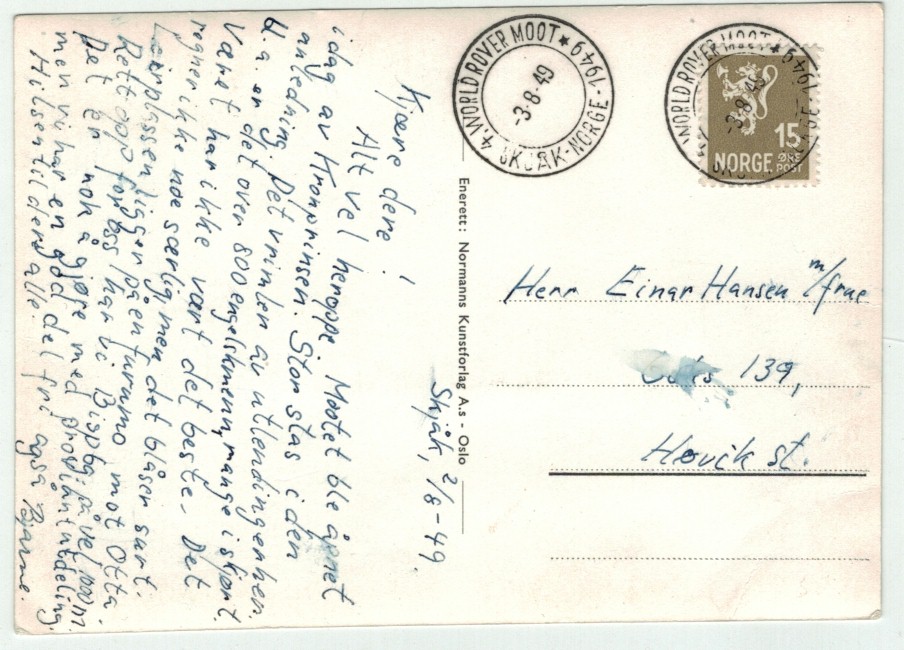 Skjåk, 2/8-49.
Kjære dere!
Alt vel heroppe. Mootet ble åpnet
idag av Kronprinsen. Stor stas i den
anledning. Det vrimler av utlendinger her.
Bl.a. er det over 800 engelskmenn, mange i skjørt.
Været har ikke vært det beste. Det
regner ikke noe særlig men det blåser surt.
Leirplassen ligger på en furumo mot Otta.
Rett opp for oss har vi Bispen
Det er nok å gjøre med proviantutdeling
men vi har en god del fri også
Hilsen til dere alle. Bjarne.
4. WORLD ROVER MOOT ★ 1949
-3-8-49
SKJÅK-NORGE
4. WORLD ROVER MOOT ★ 1949
-3-8-49
15
NORGE ØRE
POST
Enerett: Normanns Kunstforlag A.s - Oslo
Herr Einar Hansen m/frue
139,
Høvik st.